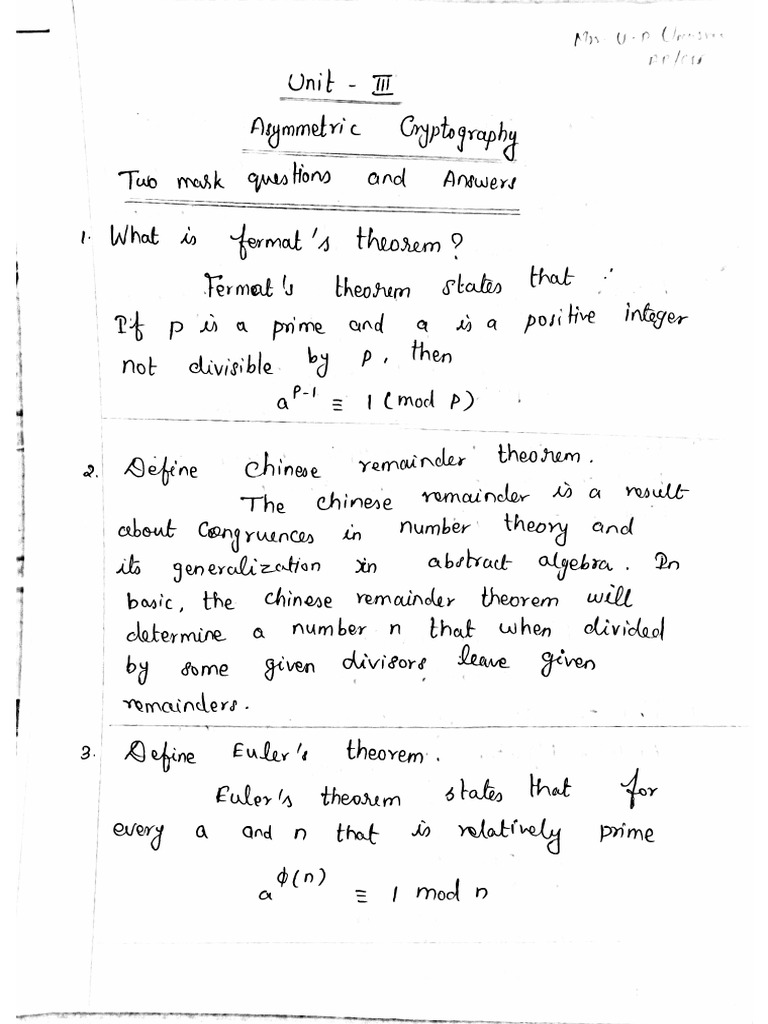 Unit - III
Asymmetric Cryptography
Two mark questions and Answers
1. What is fermat's theorem?
Fermat's theorem states that :
If p is a prime and a is a positive integer
not divisible by p, then
a^{p-1} ≡ 1 (mod p)
2. Define chinese remainder theorem.
The chinese remainder is a result
about Congruences in number theory and
its generalization in abstract algebra. In
basic, the chinese remainder theorem will
determine a number n that when divided
by some given divisors leave given
remainders.
3. Define Euler's theorem.
Euler's theorem states that for
every a and n that is relatively prime
a^{ϕ(n)} ≡ 1 mod n